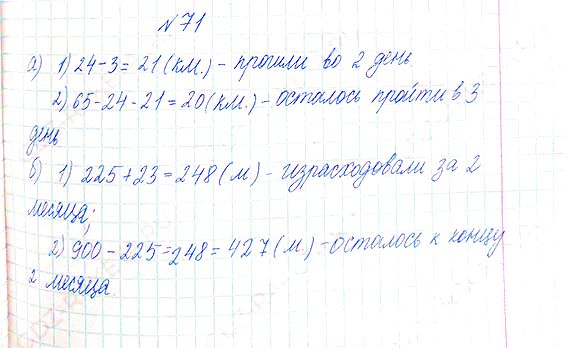 № 71
а) 1) 24 - 3 = 21 (км.) - прошли во 2 день
2) 65 - 24 - 21 = 20 (км.) - осталось пройти в 3
день
б) 1) 225 + 23 = 248 (м) - израсходовали за 2
месяца;
2) 900 - 225 = 248 = 427 (м.) - осталось к концу
2 месяца.